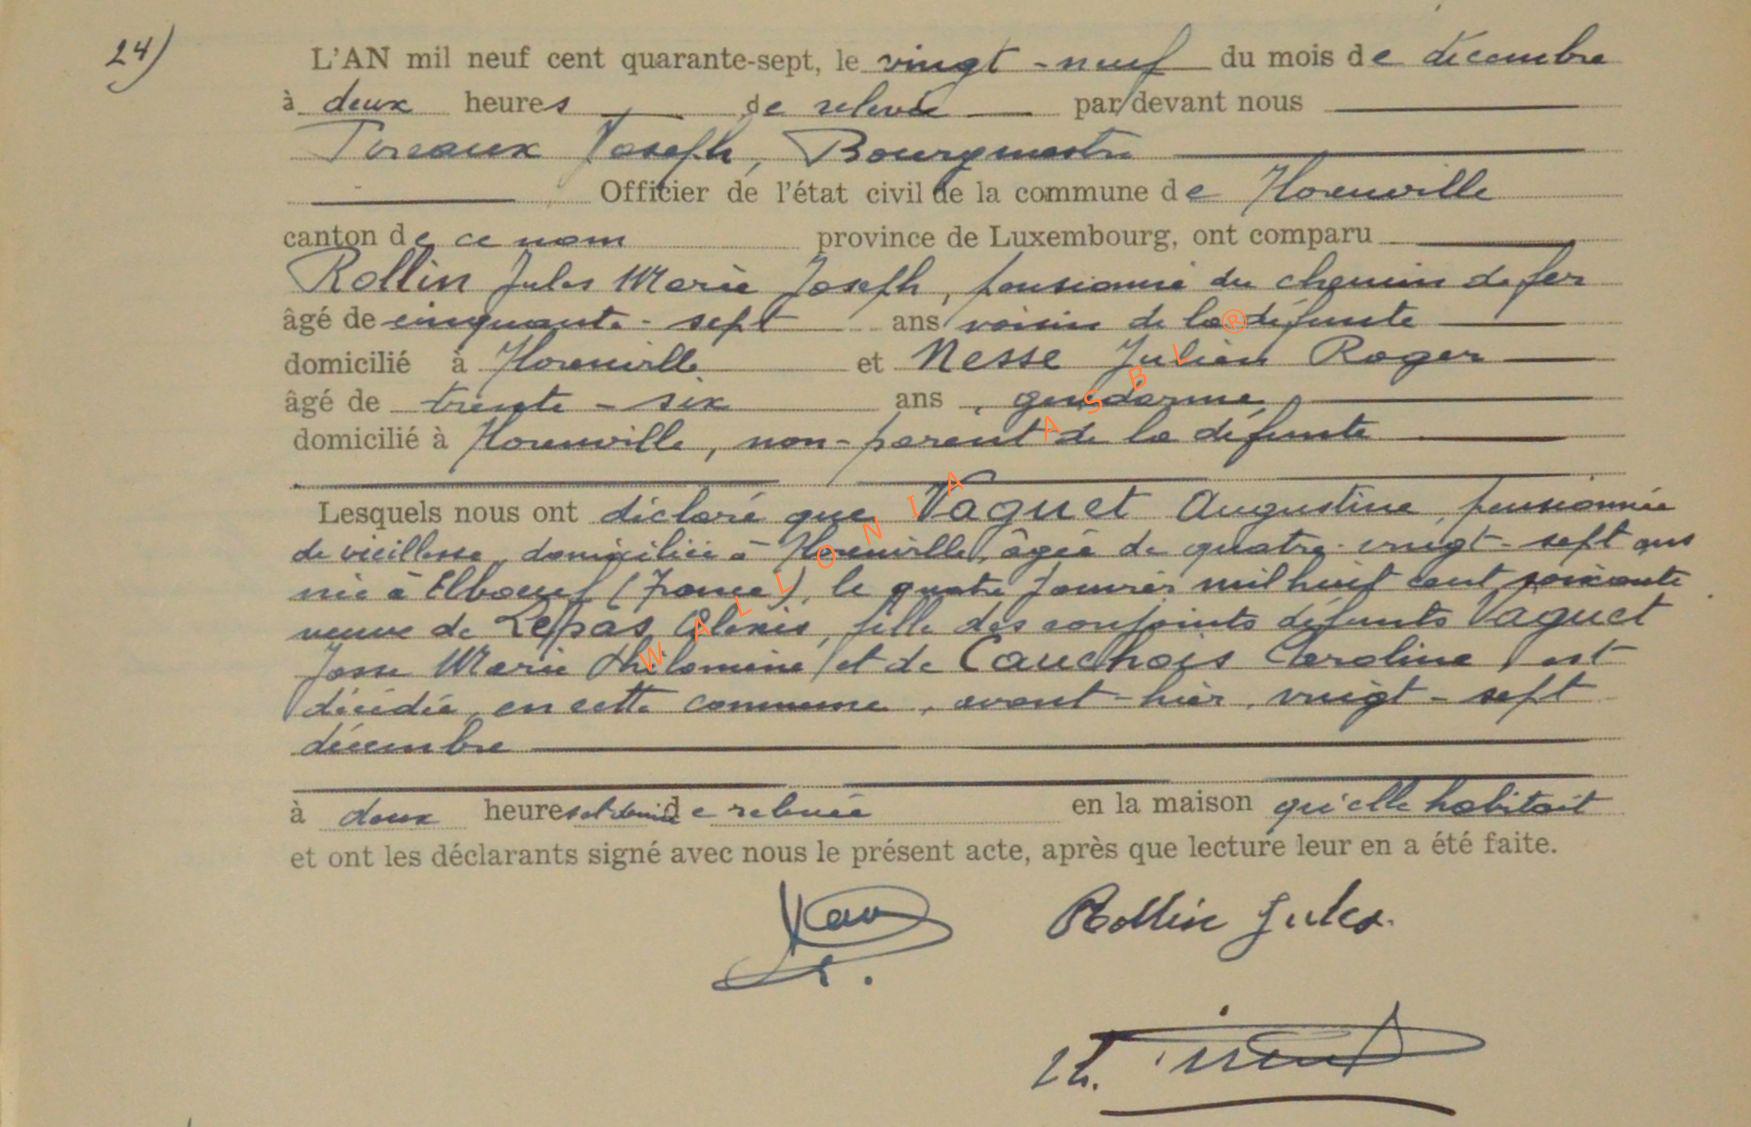 24)
L'AN mil neuf cent quarante-sept, le vingt - neuf du mois de décembre
à deux heures de relevée par devant nous
Joseph, Bourgmestre
Officier de l'état civil de la commune de Florenville
canton de ce nom province de Luxembourg, ont comparu
Rollin Jules Marie Joseph, pensionné du chemin de fer
âgé de cinquante - sept ans voisin de la défunte
domicilié à Florenville et Nesse Julien Roger
âgé de trente - six ans, gendarme,
domicilié à Florenville, non-parent de la défunte
Lesquels nous ont déclaré que Vaguet Augustine, pensionnée
de vieillesse, domiciliée à Florenville, âgée de quatre-vingt-sept ans
née à Elboeuf (France), le quatre janvier mil huit cent soixante
veuve de Lepas Alexis, fille des conjoints défunts Vaguet
Marie Philomène et de Cauchois Caroline, est
décédée, en cette commune, avant-hier, vingt-sept
décembre
à deux heures et demie de relevée en la maison qu'elle habitait
et ont les déclarants signé avec nous le présent acte, après que lecture leur en a été faite.
Rollin Jules.
WALLONIA ASBL ®